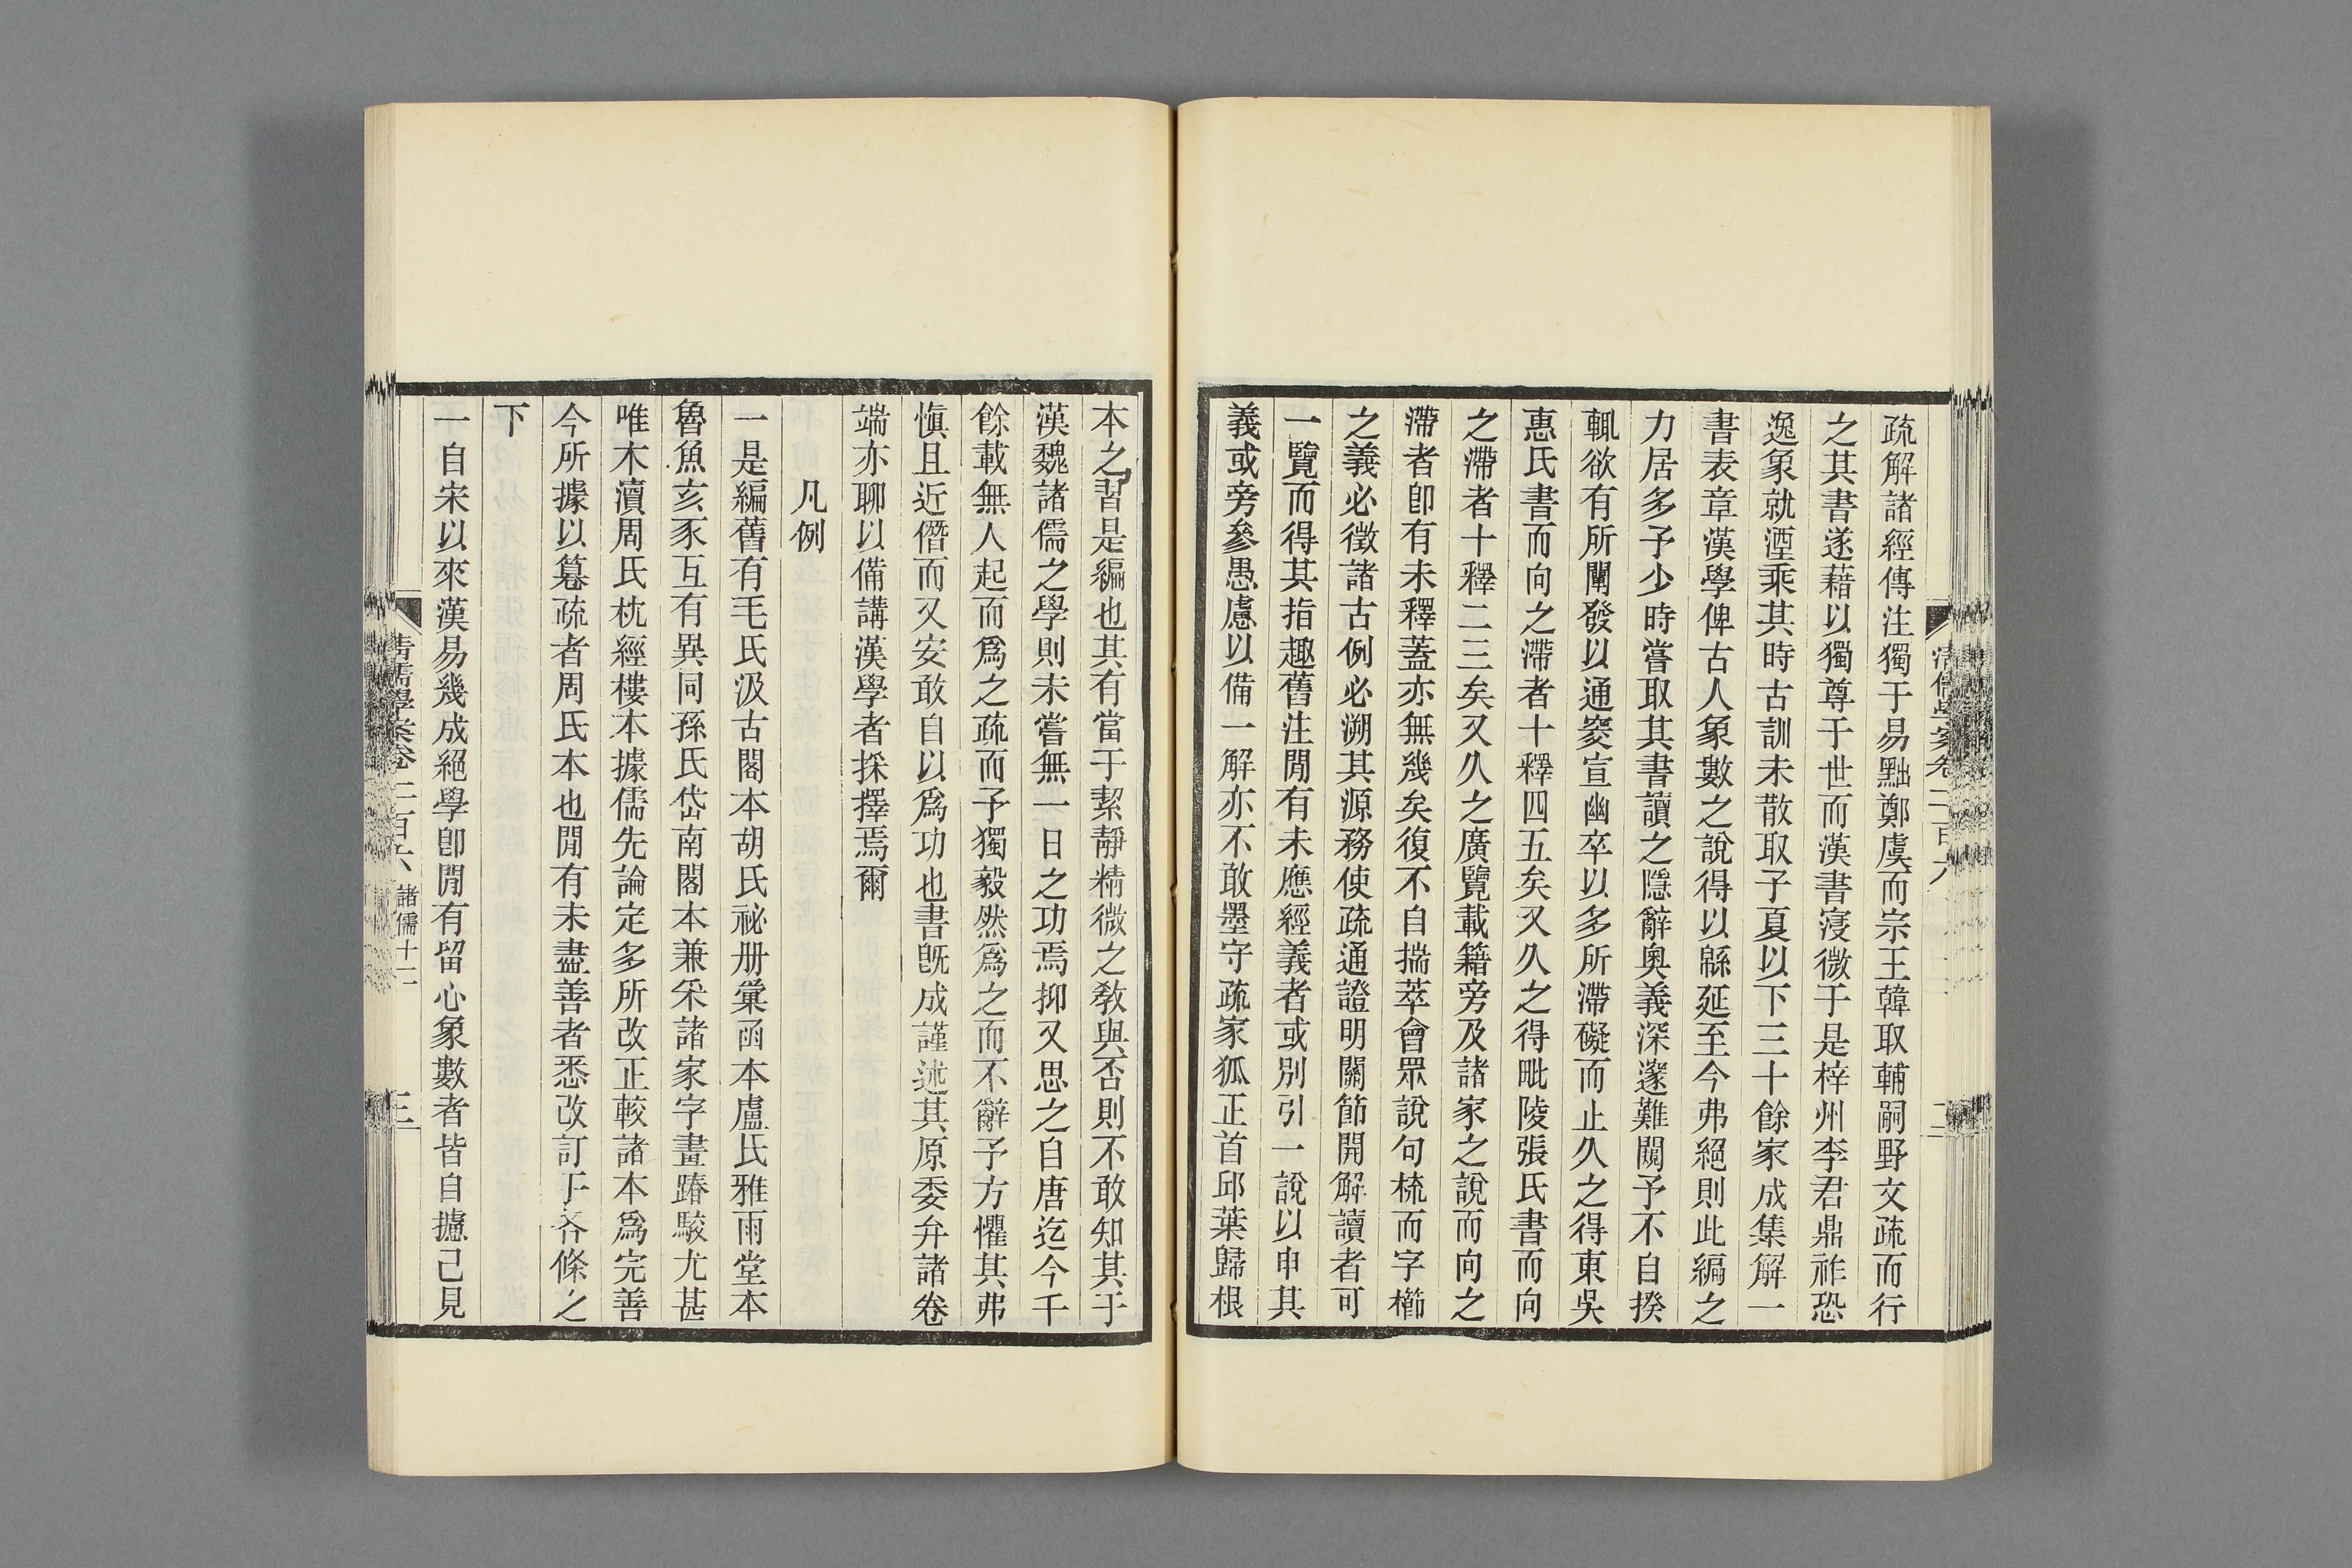 疏解諸經傳注獨于易黜鄭虞而宗王韓取輔嗣野文疏而行
之其書遂藉以獨尊于世而漢書寖微于是梓州李君鼎祚恐
逸象就湮乘其時古訓未散取子夏以下三十餘家成集解一
書表章漢學俾古人象數之說得以緜延至今弗絕則此編之
力居多予少時嘗取其書讀之隱辭奧義深邃難闚予不自揆
輒欲有所闡發以通窔宣幽卒以多所滯礙而止久之得東吳
惠氏書而向之滯者十釋四五矣又久之得毗陵張氏書而向
之滯者十釋二三矣又久之廣覽載籍旁及諸家之說而向之
滯者卽有未釋蓋亦無幾矣復不自揣萃會眾說句梳而字櫛
之義必徵諸古例必溯其源務使疏通證明關節開解讀者可
一覽而得其指趣舊注閒有未應經義者或別引一說以申其
義或旁參愚慮以備一解亦不敢墨守疏家狐正首邱葉歸根
本之習是編也其有當于絜靜精微之敎與否則不敢知其于
漢魏諸儒之學則未嘗無一日之功焉抑又思之自唐迄今千
餘載無人起而爲之疏而予獨毅然爲之而不辭予方懼其弗
愼且近僭而又安敢自以爲功也書旣成謹述其原委弁諸卷
端亦聊以備講漢學者採擇焉爾
凡例
一是編舊有毛氏汲古閣本胡氏祕册彙函本盧氏雅雨堂本
魯魚亥豕互有異同孫氏岱南閣本兼采諸家字畫踳駁尤甚
唯木瀆周氏枕經樓本據儒先論定多所改正較諸本爲完善
今所據以簒疏者周氏本也閒有未盡善者悉改訂于各條之
下
一自宋以來漢易幾成絕學卽閒有留心象數者皆自攄己見
清儒學案卷二百六 諸儒十二
三